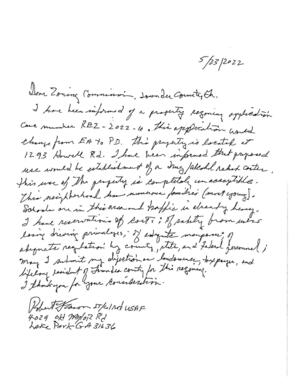 5/23/2022
Dear Zoning Commission, Lowndes County, Ga.
I have been informed of a property rezoning application
Case number REZ-2022-4. This application would
change from EA to P.D. This property is located at
1293 Howell Rd. I have been informed that proposed
use would be establishment of a Drug/alcohol rehab center.
This use of the property is completely unacceptable.
This neighborhood has numerous families (most young).
Schools are in this area and traffic is already heavy.
I have reservations of cost; of safety from
losing driving privileges; of
adequate regulation by county, state, and Federal personnel;
May I submit my objection as landowner, taxpayer, and
lifelong resident of Lowndes county for this rezoning.
I thank you for your consideration.
Robert USAF
4029 Old Rd
Lake Park GA 31636